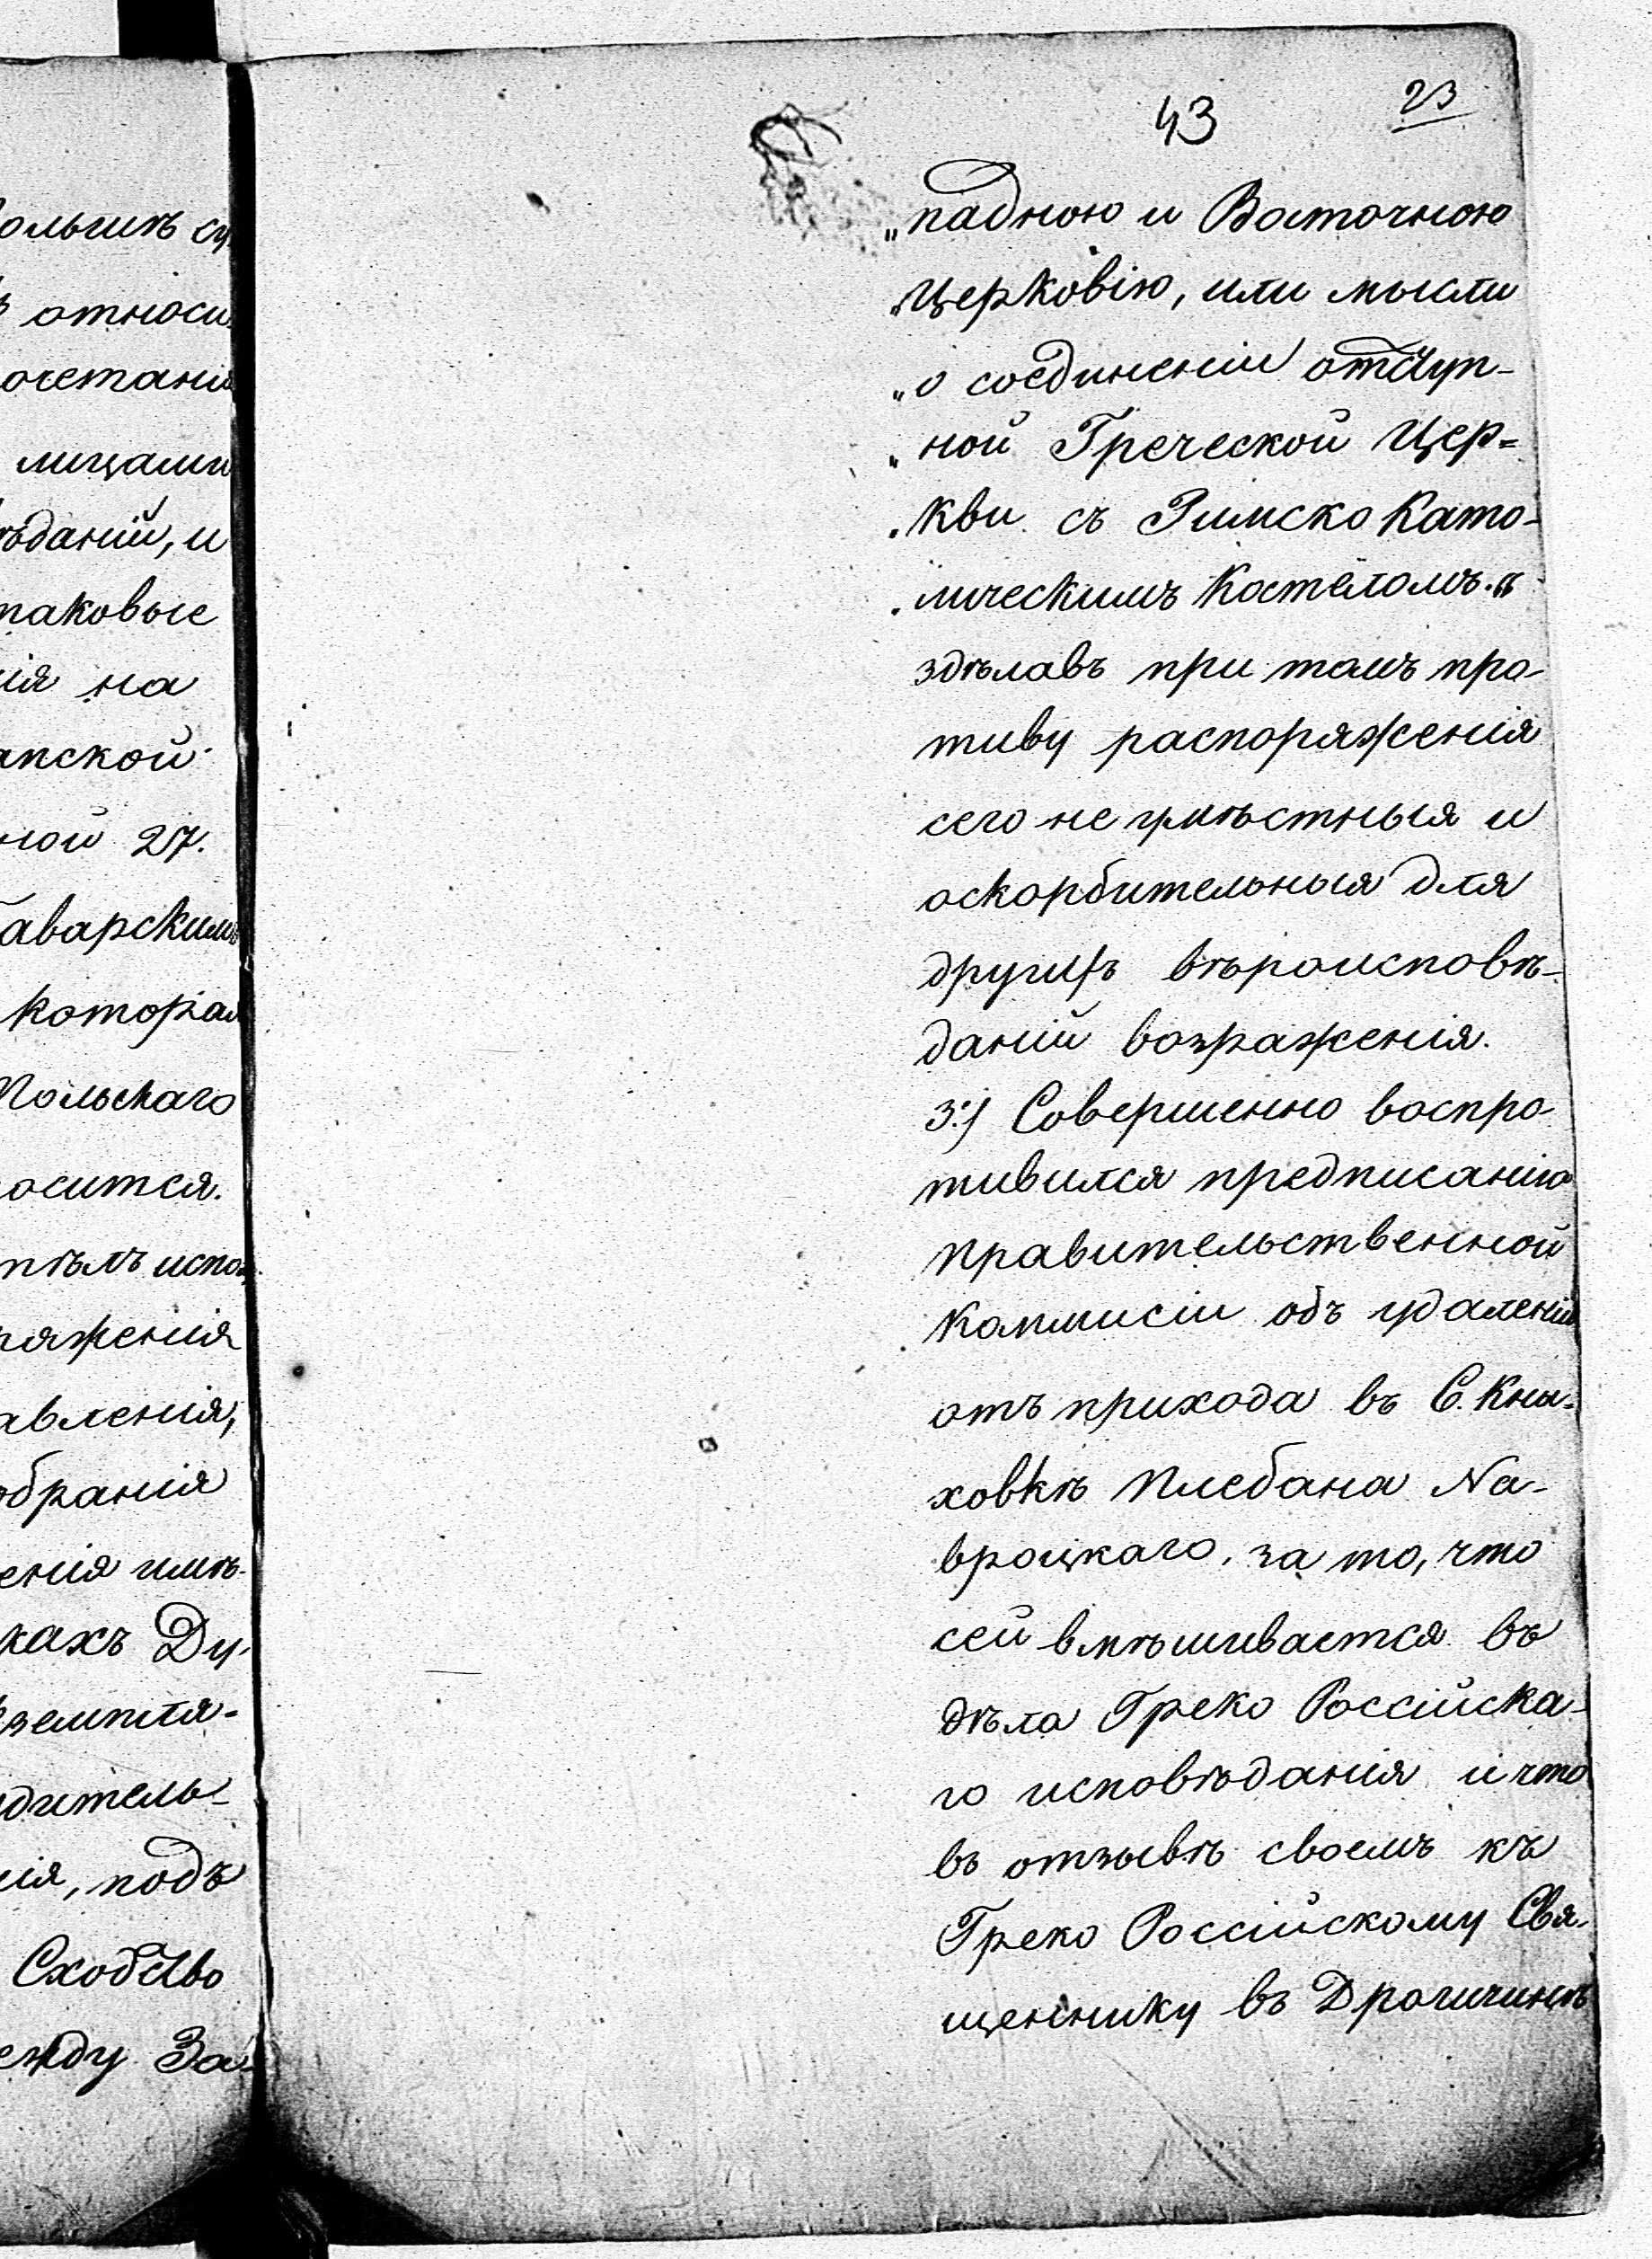 ольгитъ су
ъ относи
очетанія
лицами
ѣданій, и
таковые
ія на
апской
ной 27.
аварскимъ
которая
Польскаго
осится.
тѣлъ испо=
ряженія
авленія,
обранія
енія имѣ-
кахъ Ду-
земпля-
дитель-
ія, подъ
Сходство
ежду За-
43
23
„падною и Восточною
„Церковію, или мысли
„о соединеніи отступ-
„ной Греческой Цер=
„кви съ Римско Като-
„лическимъ Костёломъ.“
здѣлавъ при томъ про-
тиву распоряженія
сего не умѣстныя и
оскорбительныя для
другихъ вѣроисповѣ-
даній возраженія.
3:) Совершенно воспро-
тивился предписанію
Правительственной
Коммисіи объ удаленіи
отъ прихода въ С. Кны-
ховкѣ Плебана На-
вроцкаго, за то, что
сей вмѣшивается въ
дѣла Греко Россійска-
го исповѣданія и что
въ отзывѣ своемъ къ
Греко Россійскому Свя-
щеннику въ Дрогичинѣ